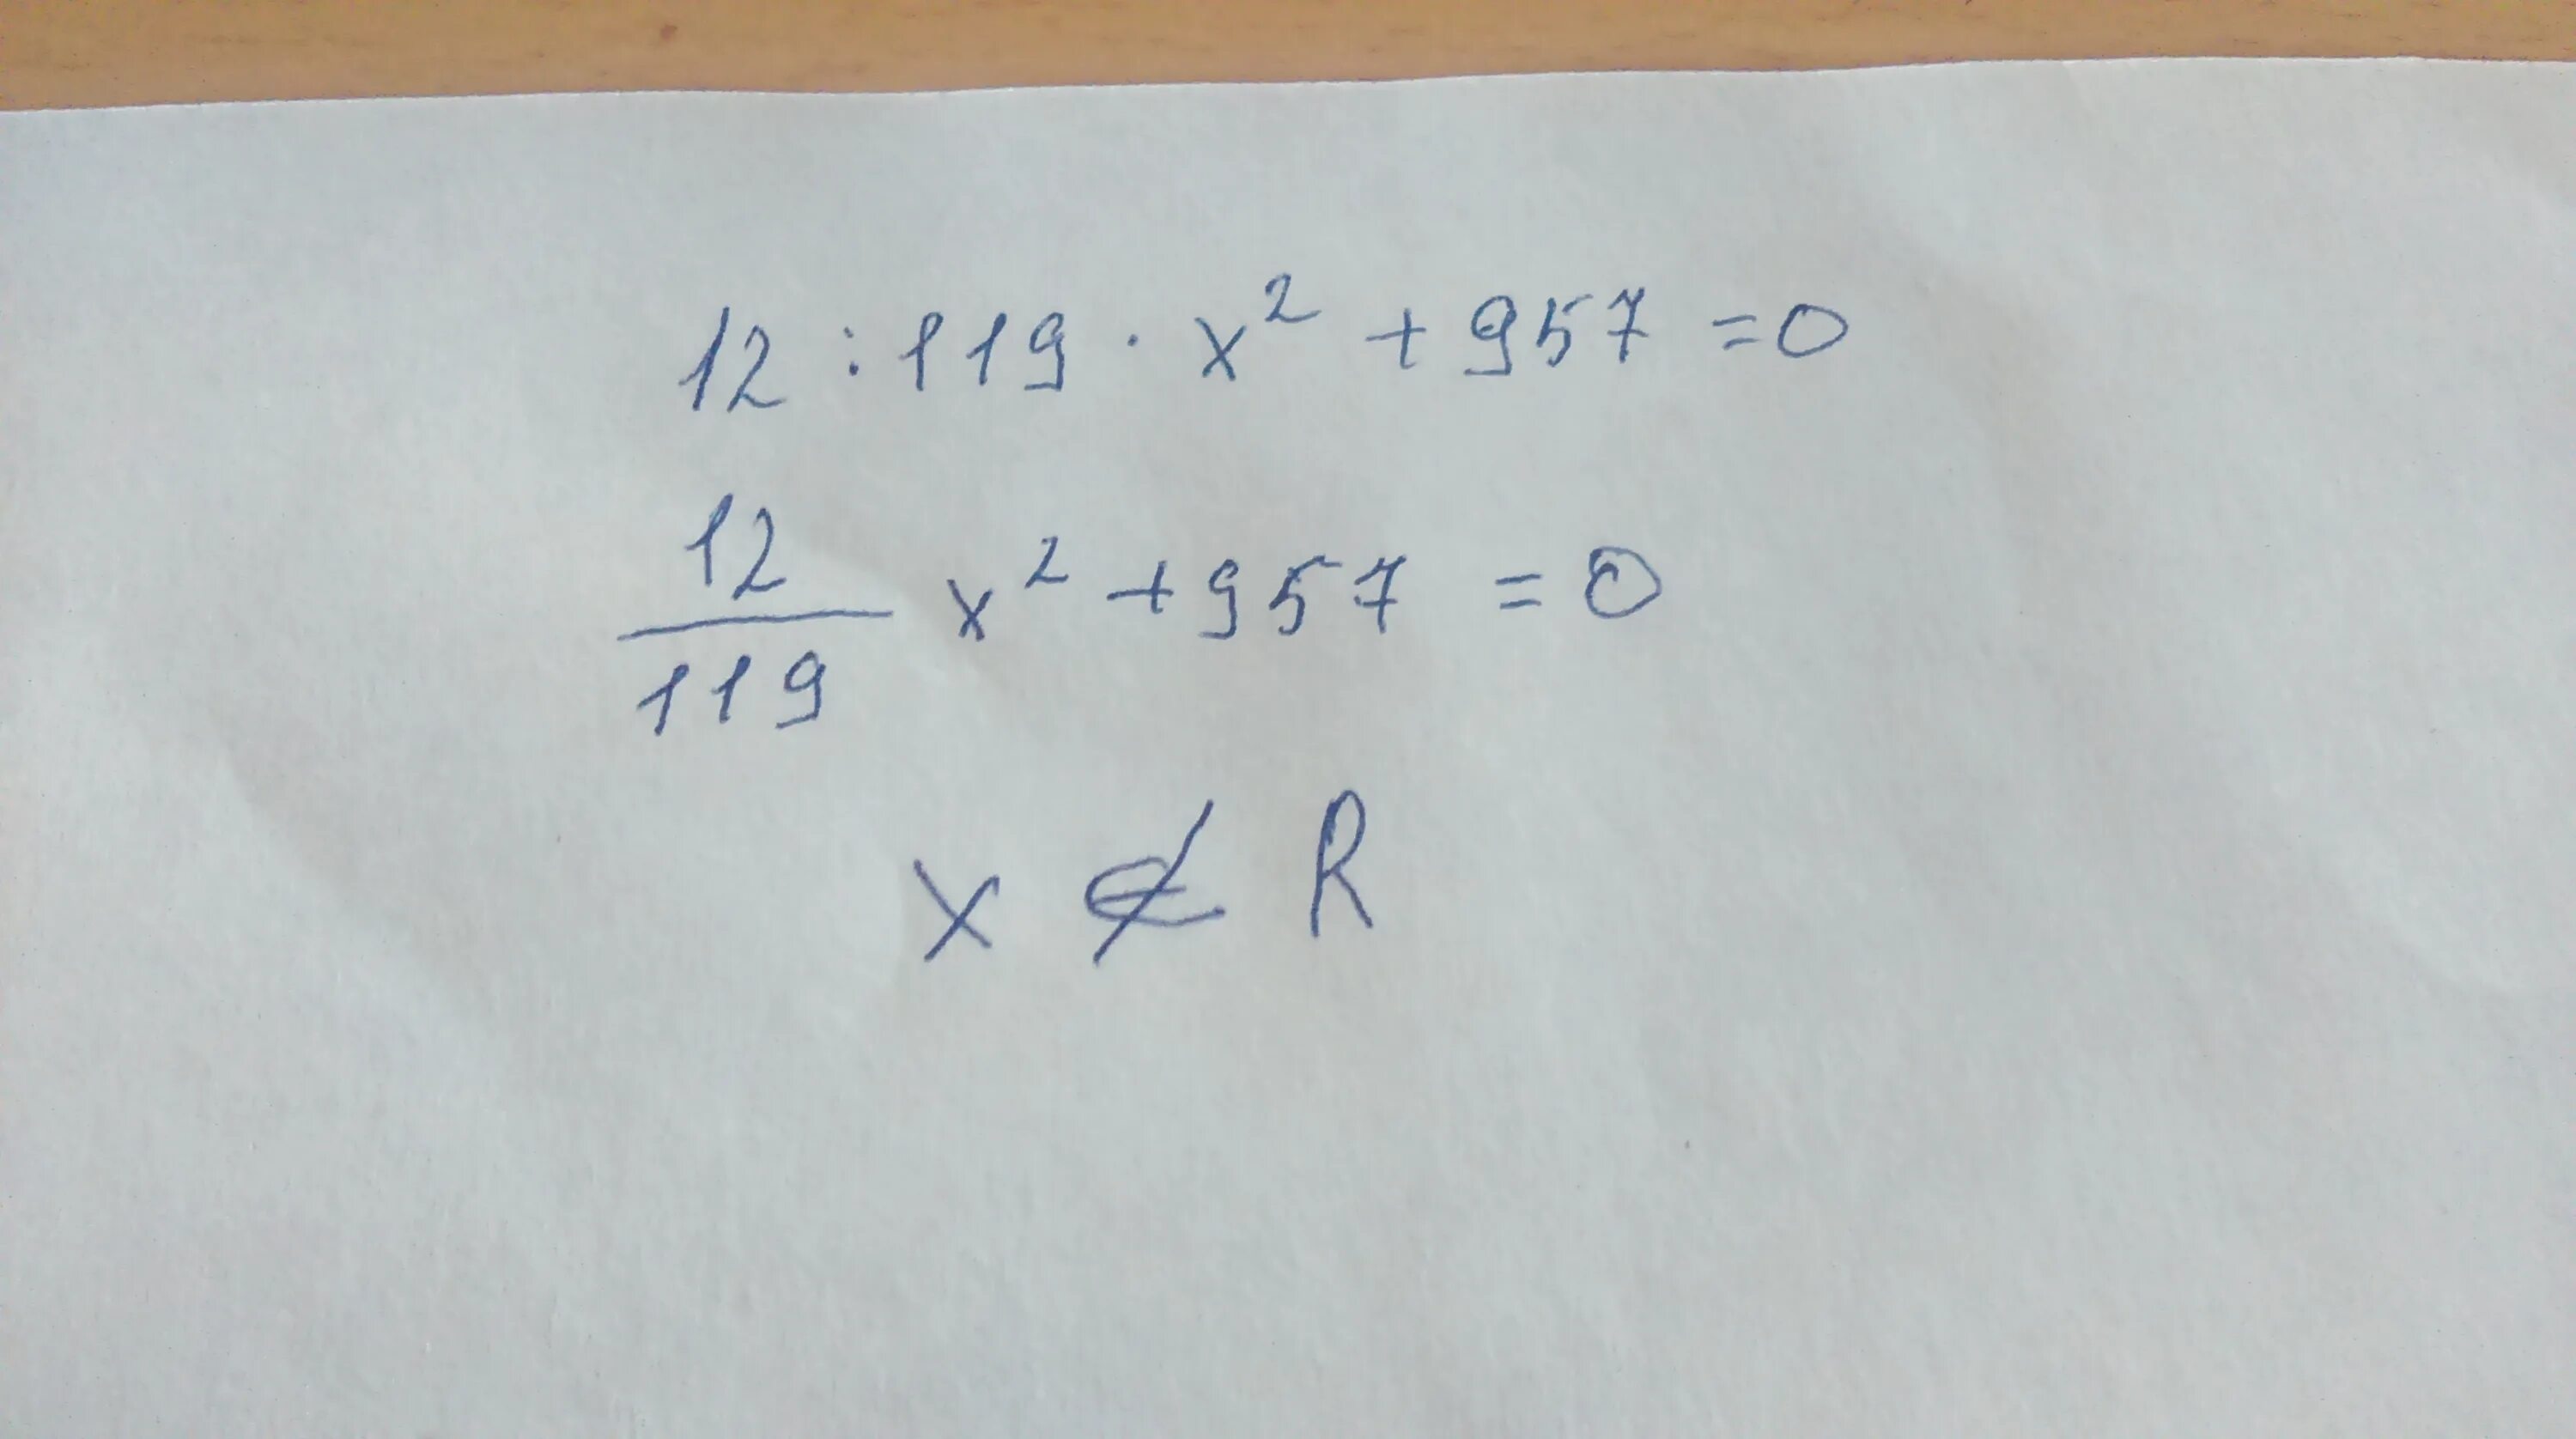 12 : 119 · x² + 957 = 0
12/119 x² + 957 = 0
x ∉ R